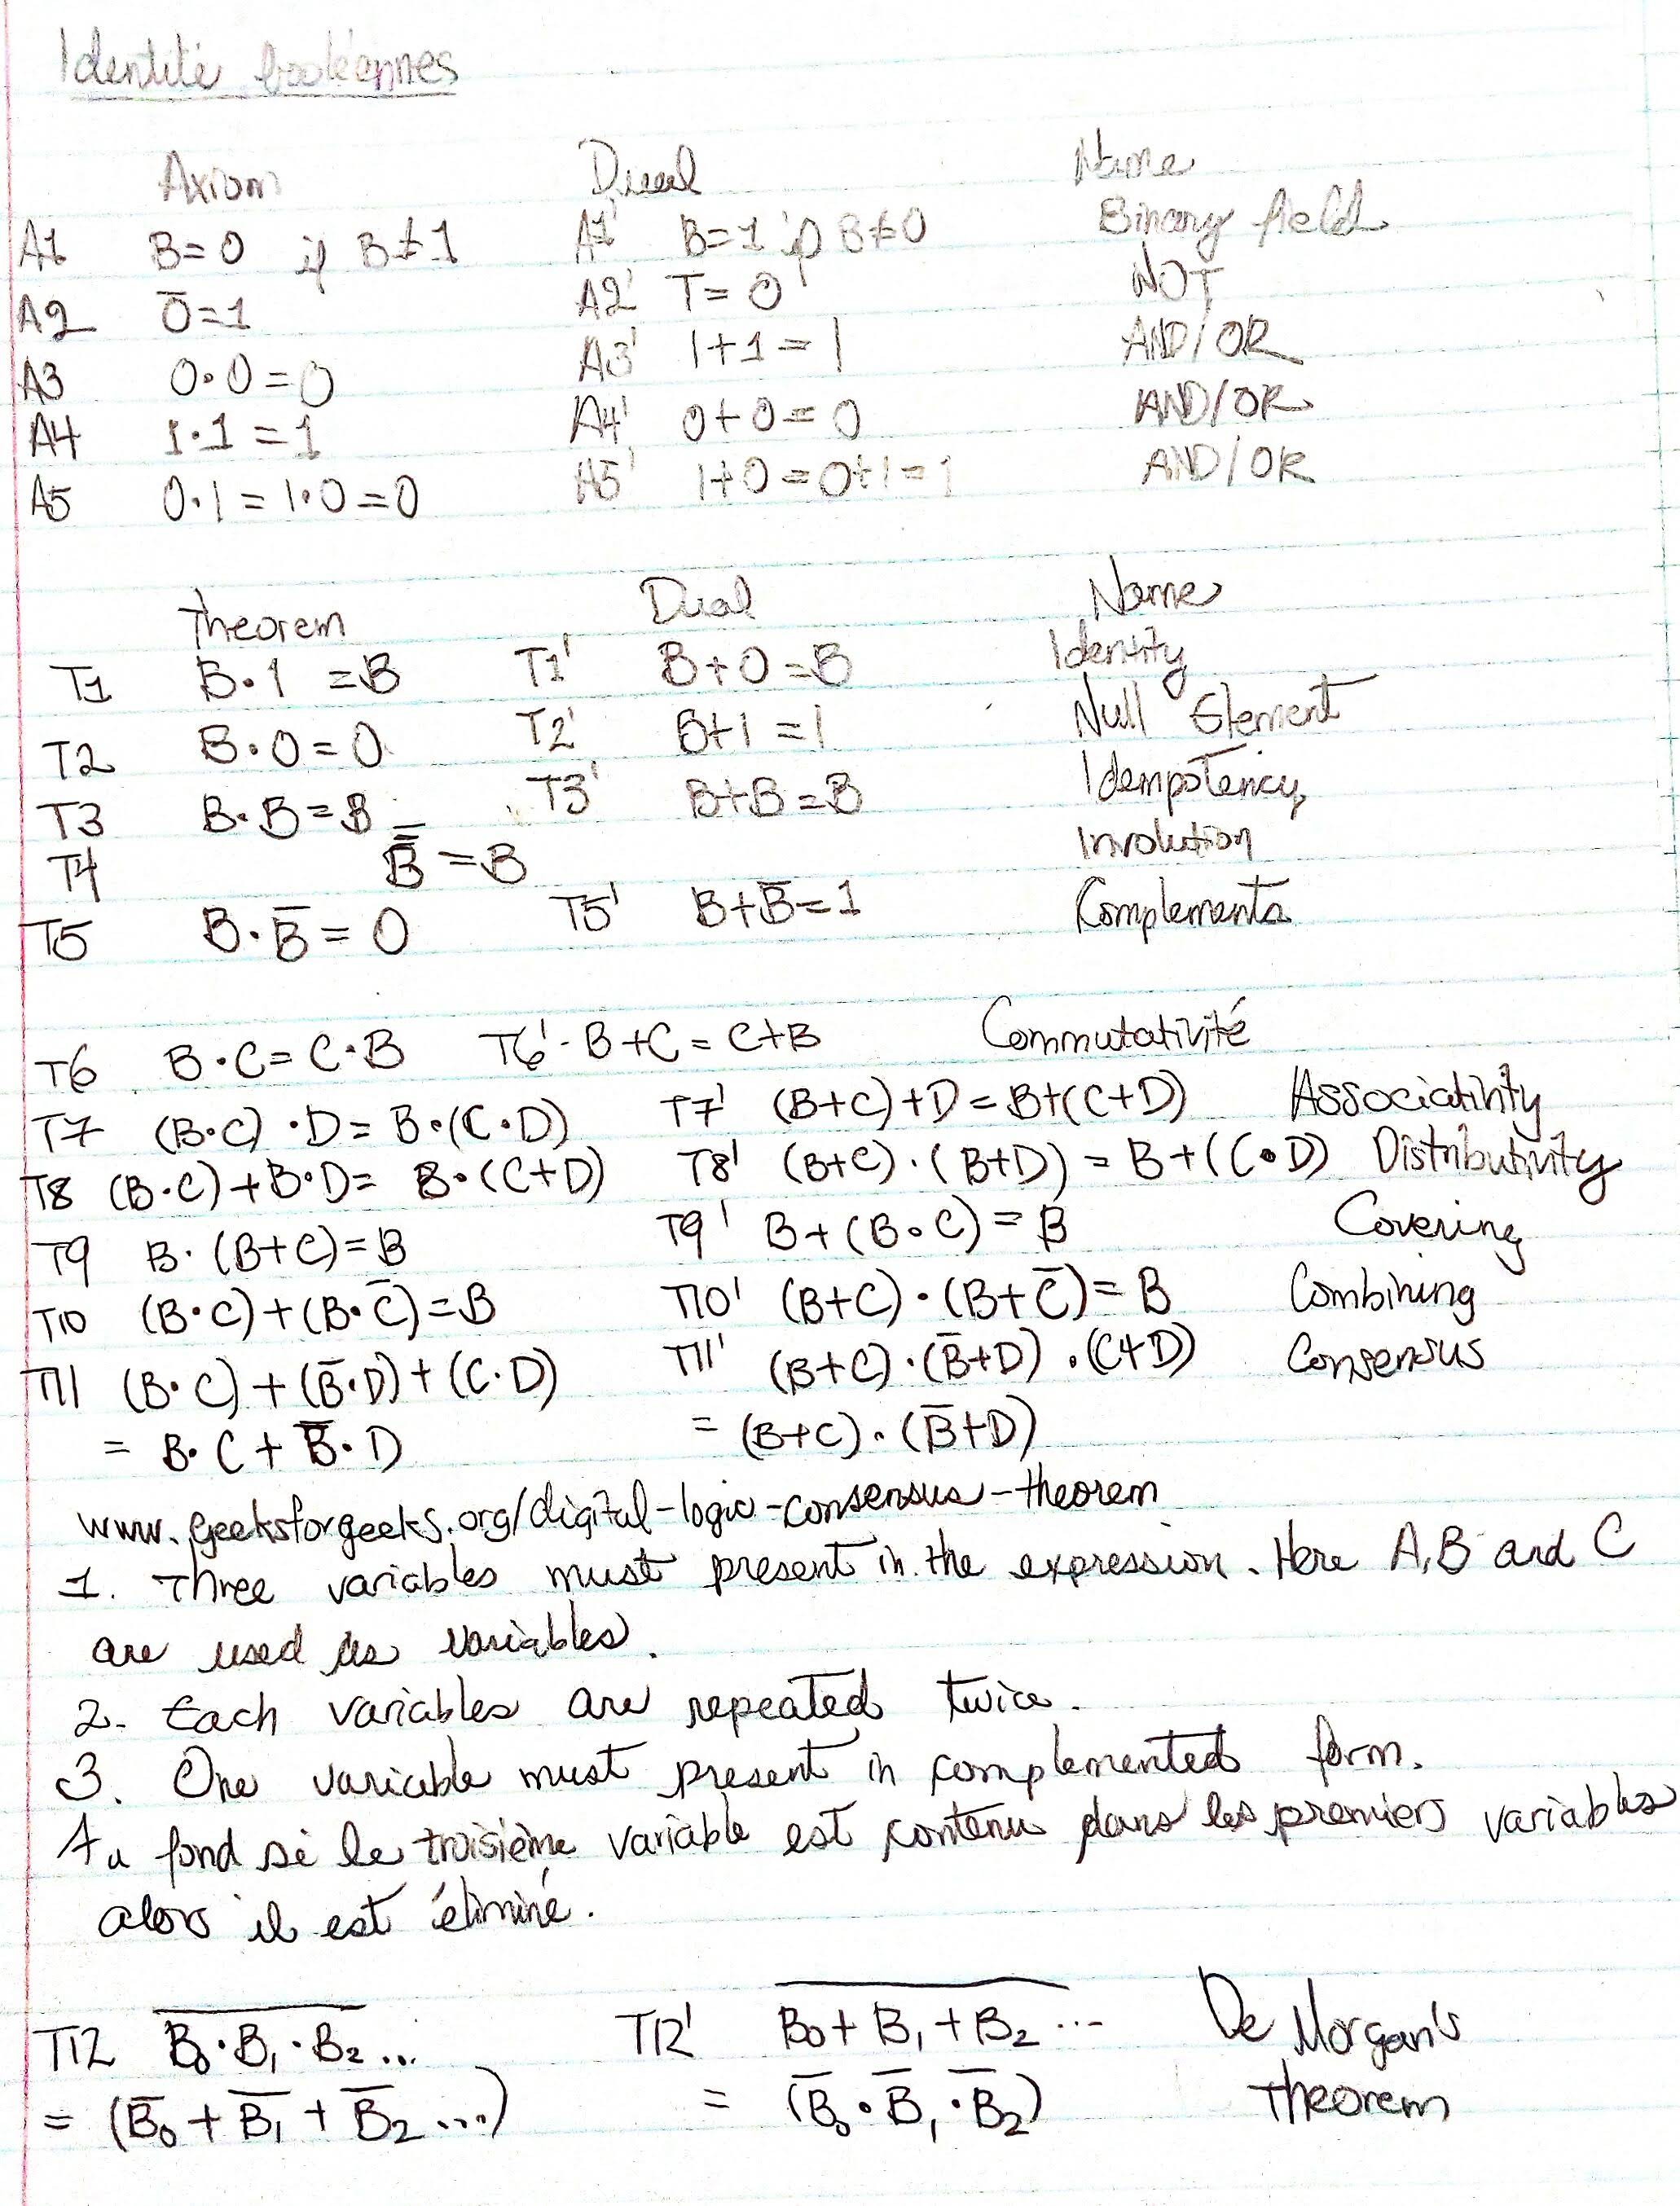 Identité booléennes
Axiom Dual Name
A1 B=0 if B≠1 A1' B=1 if B≠0 Binary field
A2 0̅=1 A2' 1̅=0 NOT
A3 0•0=0 A3' 1+1=1 AND/OR
A4 1•1=1 A4' 0+0=0 AND/OR
A5 0•1=1•0=0 A5' 1+0=0+1=1 AND/OR
Theorem Dual Name
T1 B•1=B T1' B+0=B Identity
T2 B•0=0 T2' B+1=1 Null Element
T3 B•B=B T3' B+B=B Idempotency
T4 B̿=B Involution
T5 B•B̅=0 T5' B+B̅=1 Complements
T6 B•C=C•B T6'. B+C=C+B Commutativité
T7 (B•C)•D=B•(C•D) T7' (B+C)+D=B+(C+D) Associativity
T8 (B•C)+B•D=B•(C+D) T8' (B+C)•(B+D)=B+(C•D) Distributivity
T9 B•(B+C)=B T9' B+(B•C)=B Covering
T10 (B•C)+(B•C̅)=B T10' (B+C)•(B+C̅)=B Combining
T11 (B•C)+(B̅•D)+(C•D) T11' (B+C)•(B̅+D)•(C+D) Consensus
= B•C+B̅•D = (B+C)•(B̅+D)
www.geeksforgeeks.org/digital-logic-consensus-theorem
1. Three variables must present in the expression. Here A,B and C
are used as variables.
2. Each variables are repeated twice.
3. One variable must present in complemented form.
Au fond si le troisième variable est contenu dans les premiers variables
alors il est éliminé.
T12 B̅₀̅•̅B̅₁̅•̅B̅₂̅... T12' B̅₀̅+̅B̅₁̅+̅B̅₂̅... De Morgan's
= (B̅₀+B̅₁+B̅₂...) = (B̅₀•B̅₁•B̅₂) Theorem